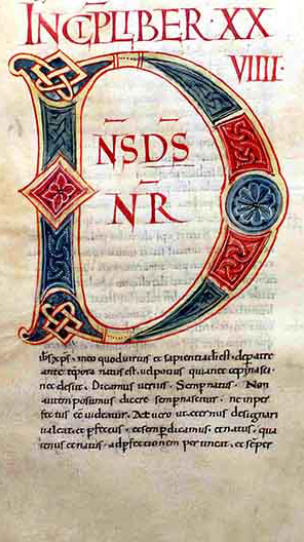 INCIP̄ LIBER·XX
VIIII·
D
N̄S D̄S
N̄R
ih̄s xp̄s, in eo quod uirtus et sapientia di est, de patre
ante tēpora natus est, uel potius quia nec cepit nasci
nec desiit. Dicamus uerius. Semp natus. Non
autem possumus dicere semp nascitur. ne inper
fectus ee uideatur. At uero ut aeternus designari
ualeat, et pfectus. et semp dicamus. et natus. qua
tenus et natus. ad pfectionem pertineat, et semper